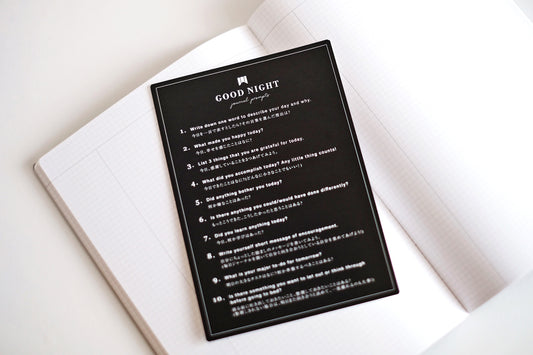 GOOD NIGHT
journal prompts
1. Write down one word to describe your day and why.
今日を一言で表すとしたら?その言葉を選んだ理由は?
2. What made you happy today?
今日、幸せを感じたことはなに?
3. List 3 things that you are grateful for today.
今日、感謝していることを3つあげてみよう。
4. What did you accomplish today? Any little thing counts!
今日できたことはなに?(どんなに小さなことでもいい!)
5. Did anything bother you today?
何か嫌なことはあった?
6. Is there anything you could/would have done differently?
もっとこうできた、こうしたかったと思うことはある?
7. Did you learn anything today?
今日、何か学びはあった?
8. Write yourself short message of encouragement.
自分にちょっとした励ましのメッセージを書いてみよう。
9. What is your major to-do for tomorrow?
明日の大きなタスクはなに?何か準備することはある?
10. Is there something you want to let out or think through
before going to bed?